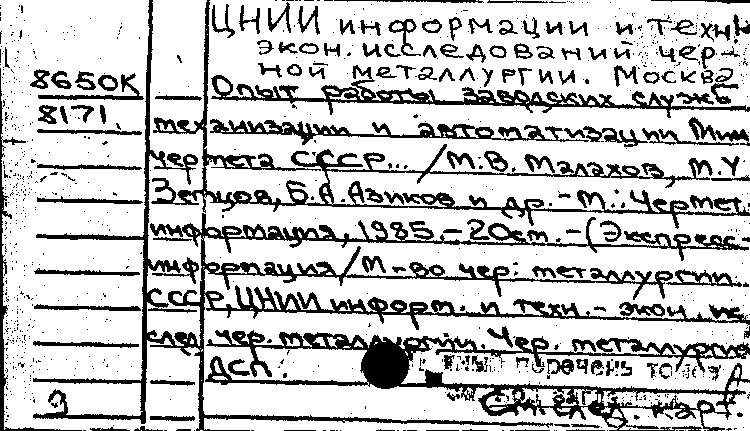 ЦНИИ информации и техн
экон. исследований чер-
ной металлургии. Москва
8650К Опыт работы заводских служб
8171. механизации и автоматизации Мин
чермета СССР... / М.В. Малахов, М.У.
Земцов, Б.А. Азиков и др. - М.: Чермет.
информация, 1985. - 20см. - (Экспресс-
информация / М-во чер. металлургии
СССР, ЦНИИ информ. и техн.-экон. ис
след. чер. металлургии. Чер. металлургия
ДСП. перечень томов
9 См. след. карт.